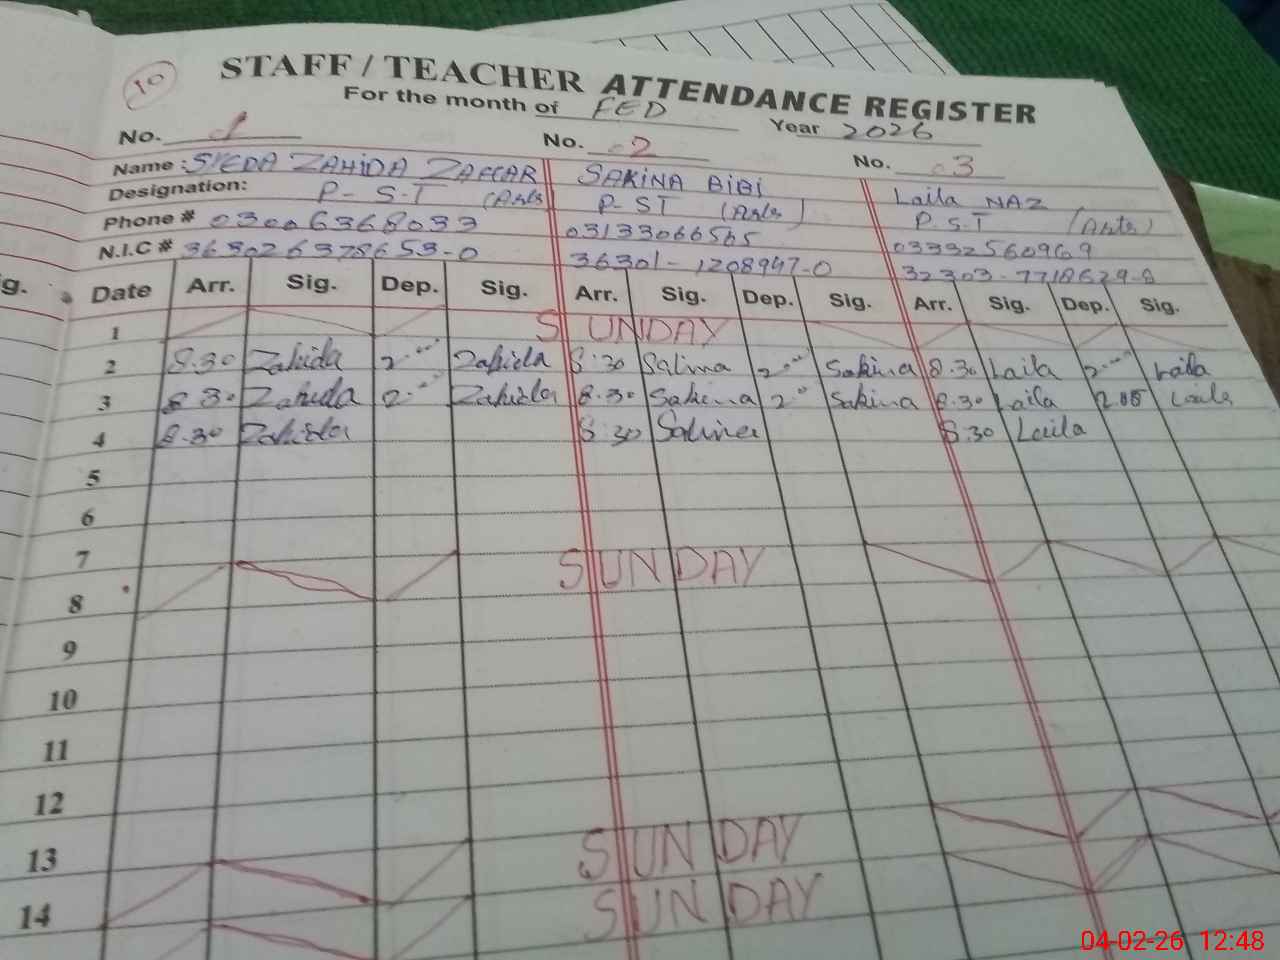 10
STAFF / TEACHER ATTENDANCE REGISTER
For the month of FED Year 2026
No. 1 No. 2 No. 3
Name : SYEDA ZAHIDA ZAFFAR SAKINA BIBI Laila NAZ
Designation: P-S.T (Arts) P-ST (Arts) P.S.T (Arts)
Phone # 03006368033 03133066565 03332560969
N.I.C # 36302 6378653-0 36301-1208947-0 32303-7718629-8
ig. Date Arr. Sig. Dep. Sig. Arr. Sig. Dep. Sig. Arr. Sig. Dep. Sig.
1 SUNDAY
2 8.30 Zahida 2.00 Zahida 8:30 Sakina 2.00 Sakina 8.30 Laila 2.00 Laila
3 8.30 Zahida 2.00 Zahida 8.30 Sakina 2.00 Sakina 8.30 Laila 2.05 Laila
4 8.30 Zahida 8:30 Sakina 8:30 Laila
5
6
7 SUNDAY
8
9
10
11
12
13 SUNDAY
14 SUNDAY
04-02-26 12:48